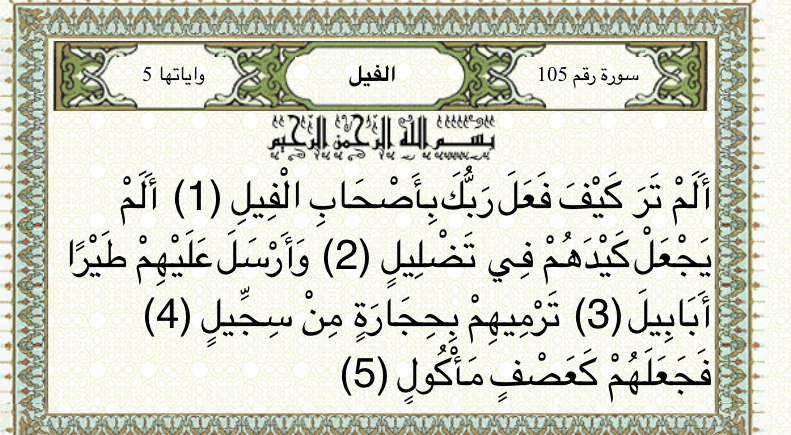 سورة رقم 105
الفيل
واياتها 5
بسم الله الرحمن الرحيم
أَلَمْ تَرَ كَيْفَ فَعَلَ رَبُّكَ بِأَصْحَابِ الْفِيلِ (1) أَلَمْ
يَجْعَلْ كَيْدَهُمْ فِي تَضْلِيلٍ (2) وَأَرْسَلَ عَلَيْهِمْ طَيْرًا
أَبَابِيلَ (3) تَرْمِيهِمْ بِحِجَارَةٍ مِنْ سِجِّيلٍ (4)
فَجَعَلَهُمْ كَعَصْفٍ مَأْكُولٍ (5)